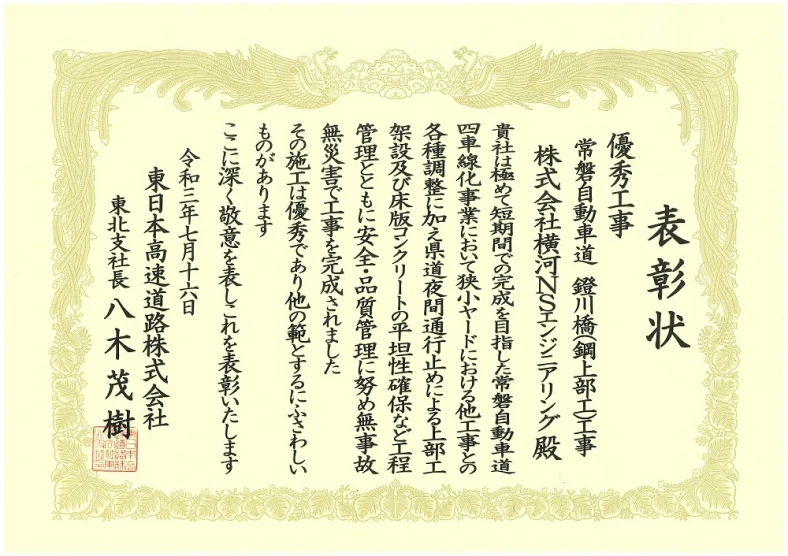 表彰状
優秀工事
常磐自動車道 鐙川橋(鋼上部工)工事
株式会社横河NSエンジニアリング 殿
貴社は極めて短期間での完成を目指した常磐自動車道
四車線化事業において狭小ヤードにおける他工事との
各種調整に加え県道夜間通行止めによる上部工
架設及び床版コンクリートの平坦性確保など工程
管理とともに安全・品質管理に努め無事故
無災害で工事を完成されました
その施工は優秀であり他の範とするにふさわしい
ものがあります
ここに深く敬意を表しこれを表彰いたします
令和三年七月十六日
東日本高速道路株式会社
東北支社長 八木茂樹